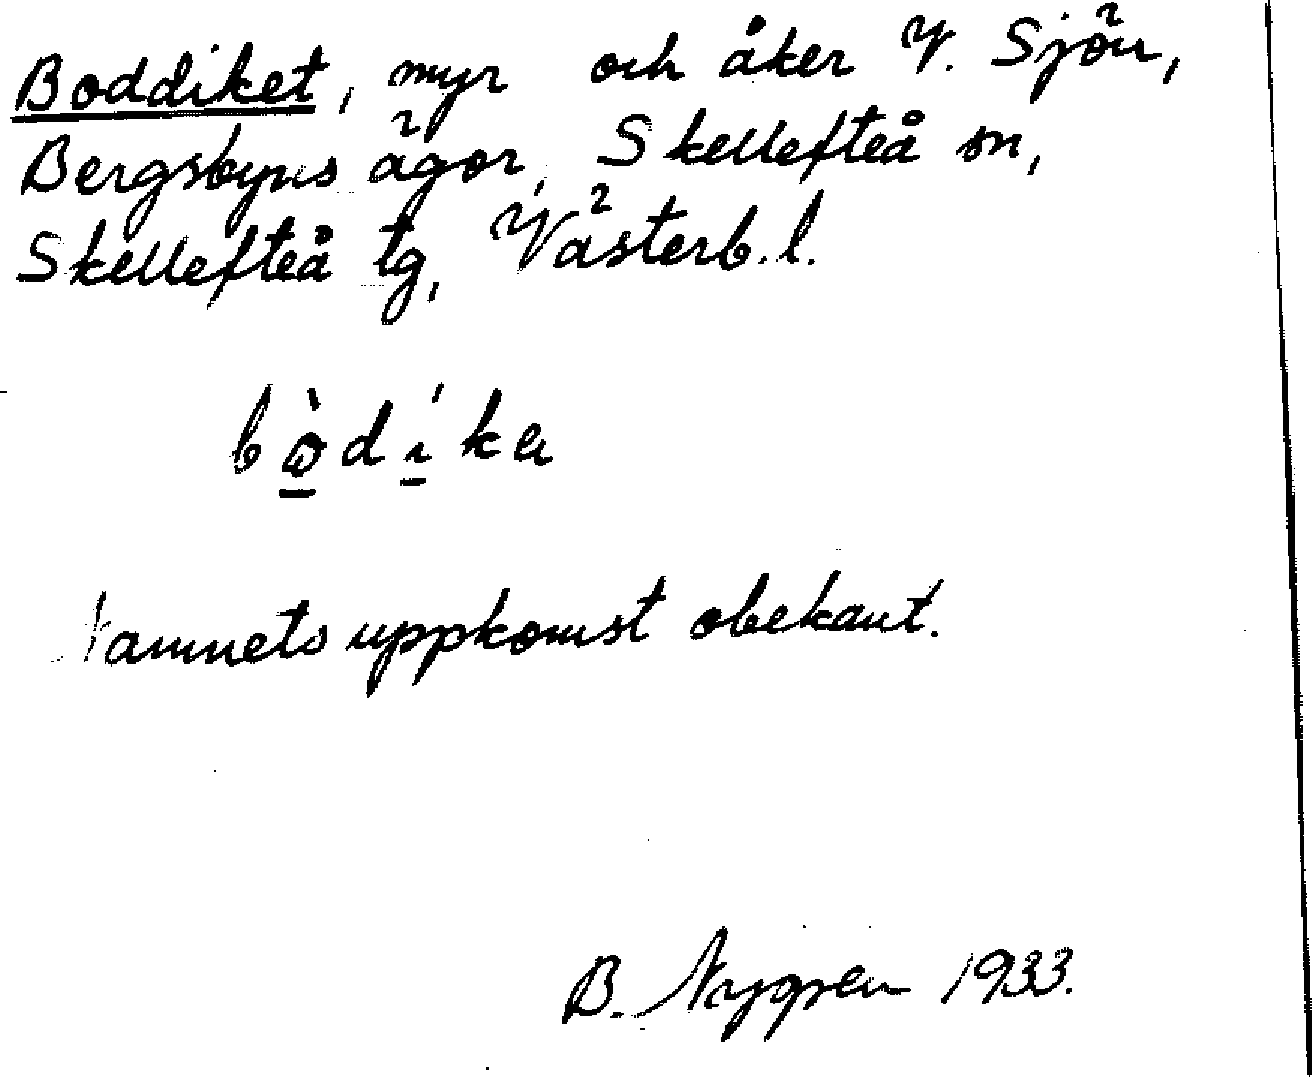 Boddiket, myr och åker V. Sjön,
Bergsbyns ägor, Skellefteå sn,
Skellefteå tg, Västerb. l.
bòdíka
Namnets uppkomst obekant.
B. Nygren 1933.